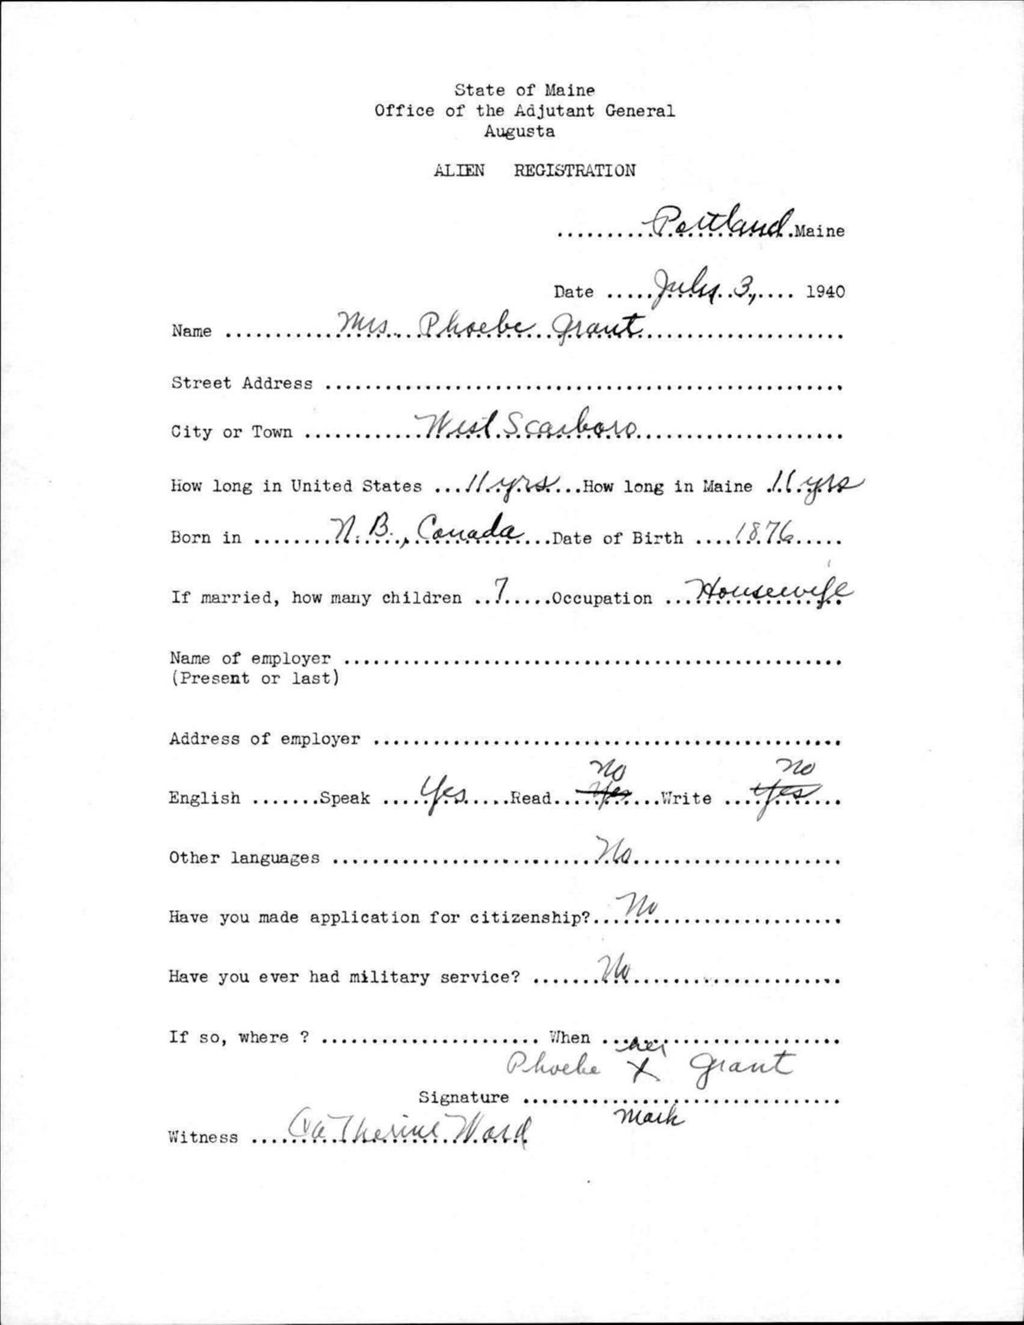 State of Maine
Office of the Adjutant General
Augusta
ALIEN REGISTRATION
..........Portland.Maine
Date .....July 3,.... 1940
Name ...........Mrs. Phoebe Grant....................
Street Address ....................................................
City or Town ............West Scarboro.....................
How long in United States ...11 yrs...How long in Maine .11 yrs
Born in ........N. B., Canada...Date of Birth ....1876.....
If married, how many children ..7.....Occupation ...Housewife
Name of employer ..................................................
(Present or last)
Address of employer ...............................................
no no
English .......Speak ....Yes.....Read....Yes....Write ....Yes.....
Other languages ..........................No.....................
Have you made application for citizenship?...No...................
Have you ever had military service? .......No.....................
If so, where ? ...................... When ........................
her
Phoebe X Grant
Signature ................................
mark
Witness ....Catherine Ward